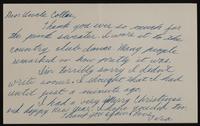 Dear Uncle Collar,
Thank you ever so much for
the pink sweater. I wore it to the
country club dance. Many people
remarked on how pretty it was.
I'm terribly sorry I didn't
write sooner. I thought that I had
until just a minute ago.
I had a very Merry Christmas
and happy New Year. I hope you did too.
Thank you again Love,